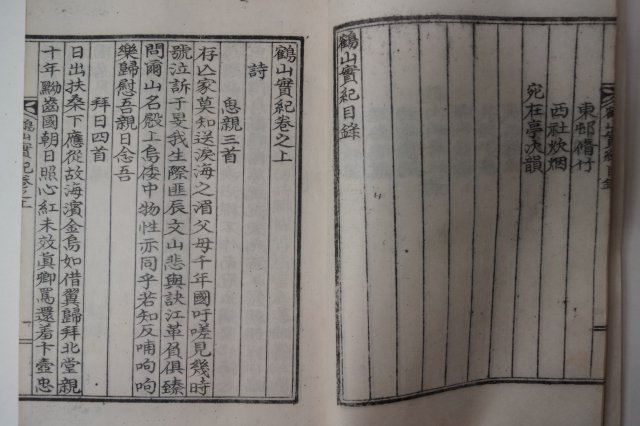 東邨偕行
西社炊烟
宛在亭次韻
鶴山實紀目錄
鶴山實紀卷之上
詩
思親三首
存亾家莫知送淚海之湄父母千年國吁嗟見幾時
號泣訴于旻我生際匪辰文山悲與訣江革負俱臻
問爾山名殿上烏倭中物性亦同乎若知反哺呴呴
樂歸慰吾親日念吾
拜日四首
日出扶桑下應從故海濱金烏如借翼歸拜北堂親
十年黝齒國朝日照心紅未效眞卿罵還羞卞壼忠
鶴山實紀卷之上